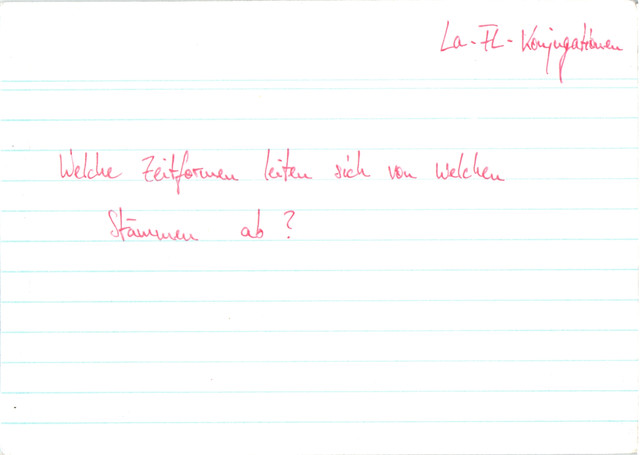 La-FL-Konjugationen
Welche Zeitformen leiten sich von welchen
Stämmen ab?